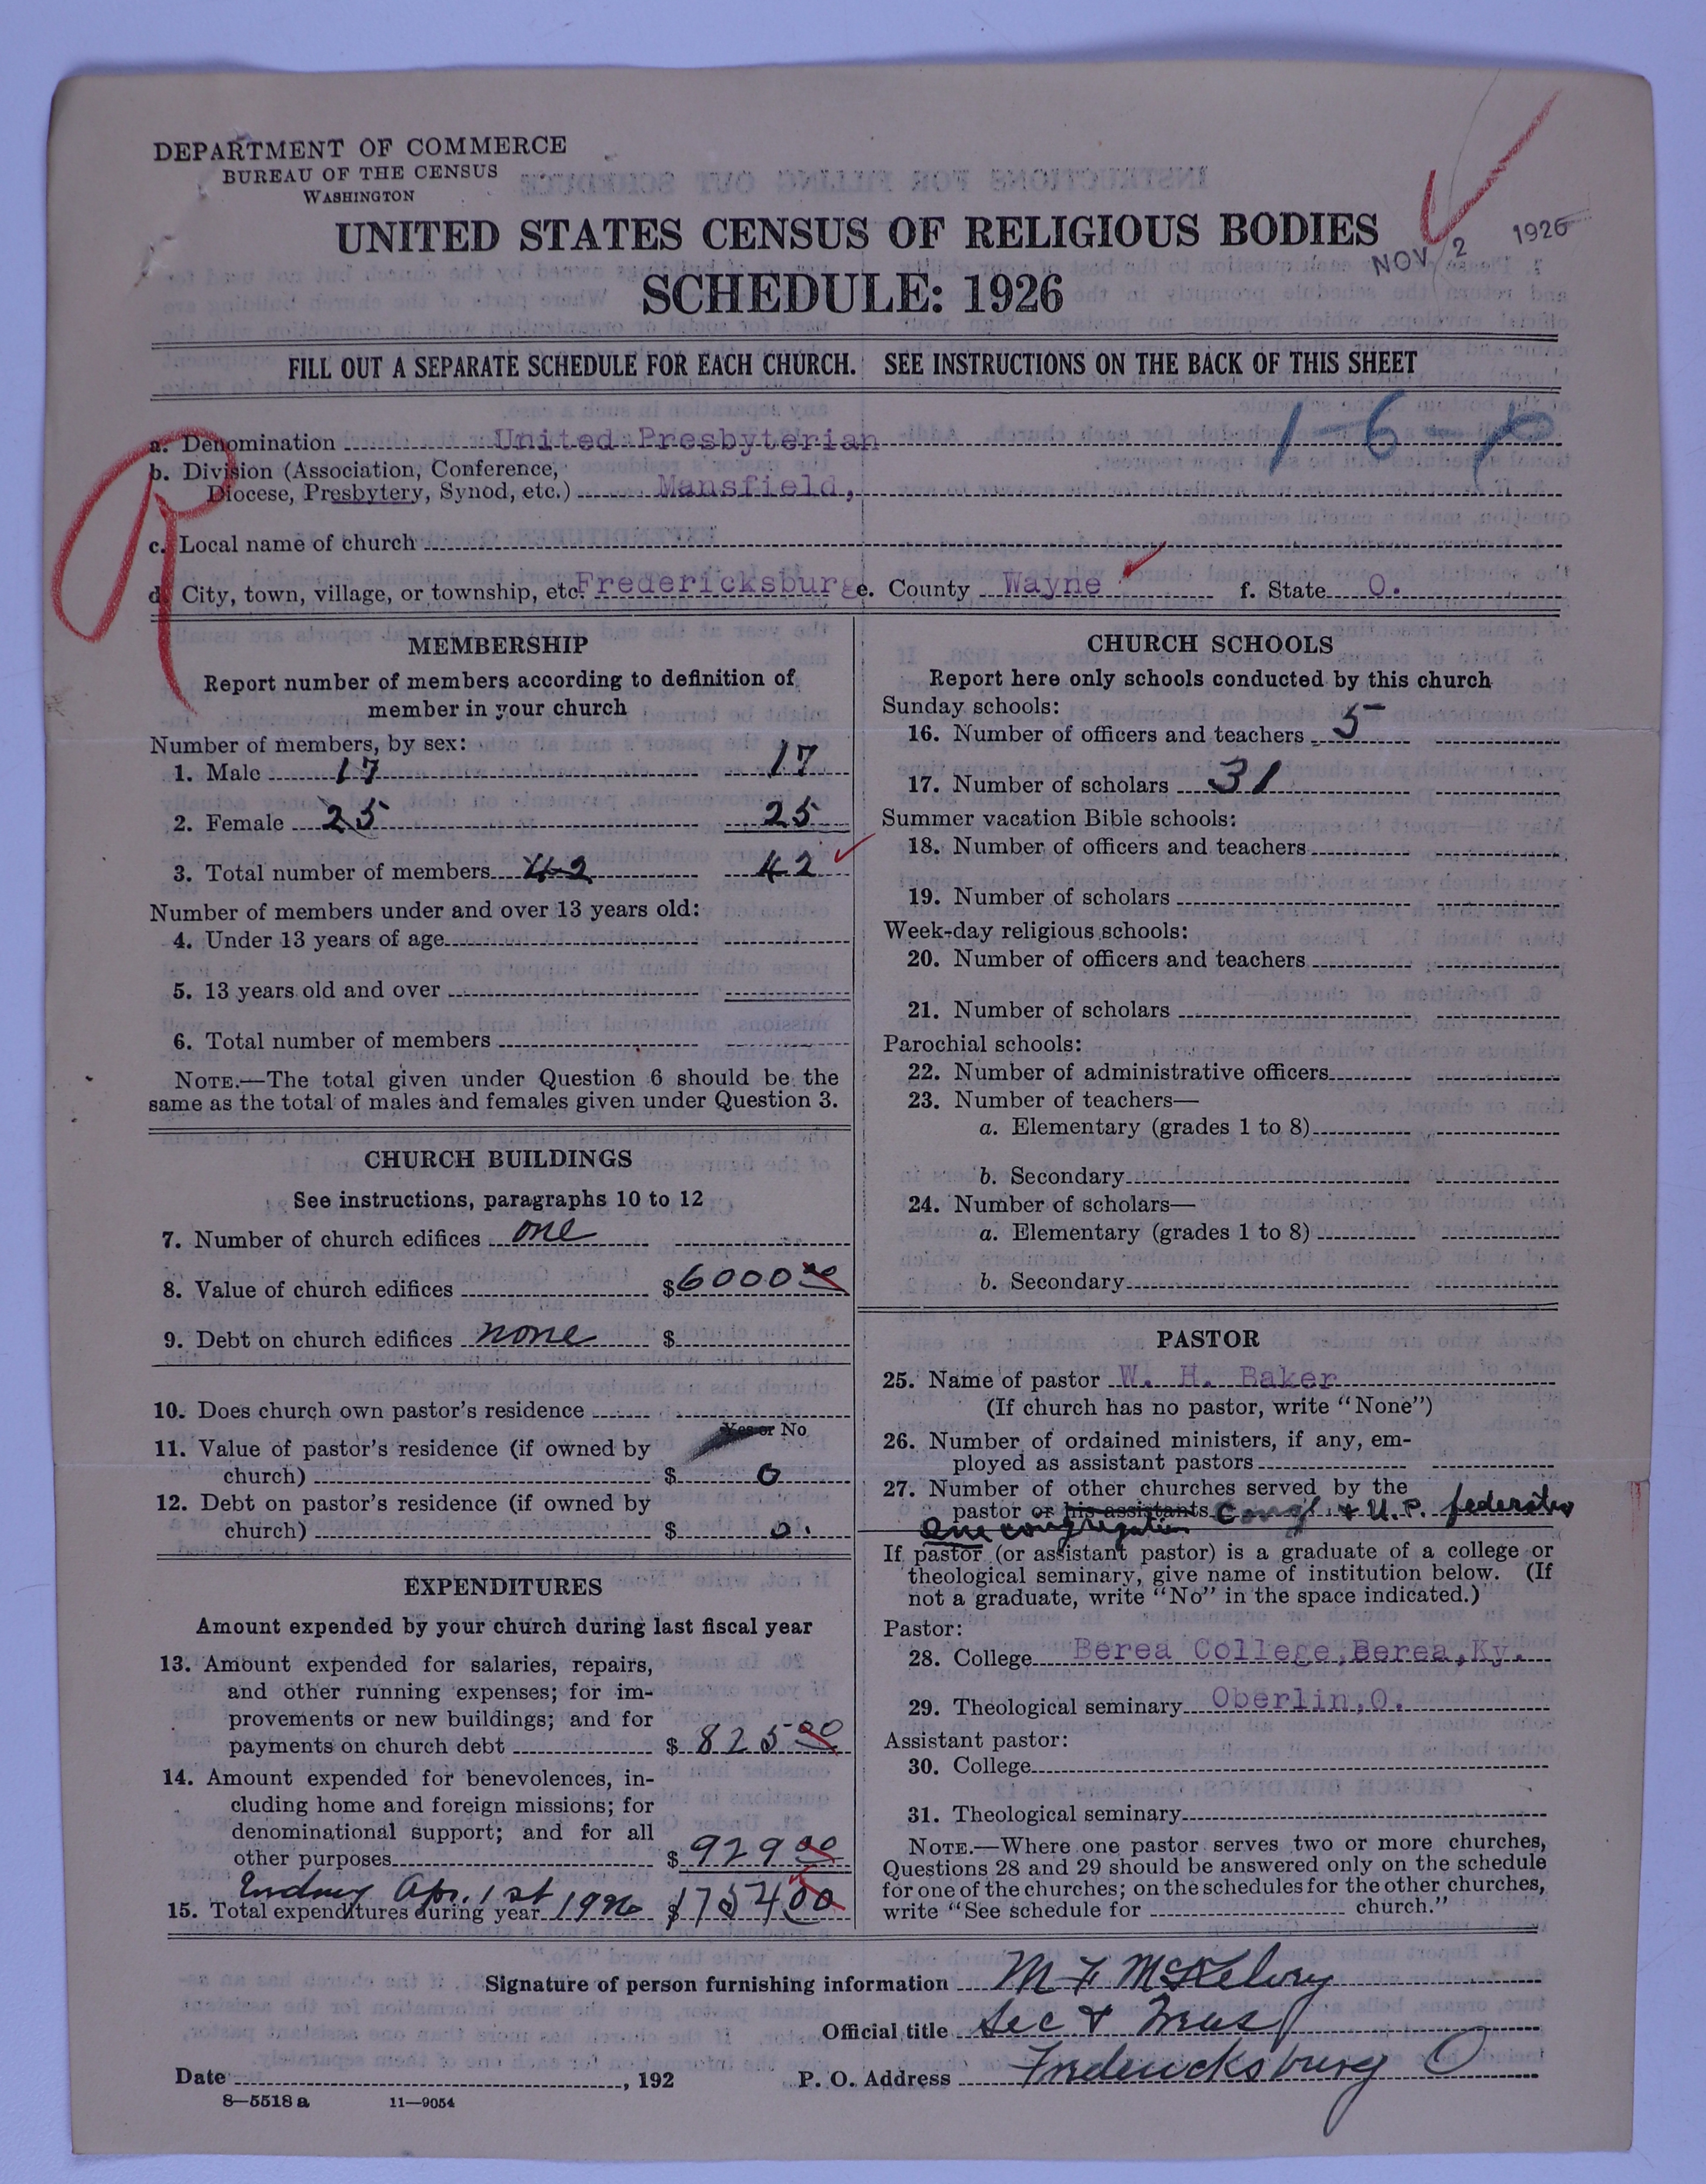 DEPARTMENT OF COMMERCE
BUREAU OF THE CENSUS
WASHINGTON
UNITED STATES CENSUS OF RELIGIOUS BODIES
NOV 2 1926
SCHEDULE: 1926
FILL OUT A SEPARATE SCHEDULE FOR EACH CHURCH. SEE INSTRUCTIONS ON THE BACK OF THIS SHEET
1-6-
a. Denomination United Presbyterian
b. Division (Association, Conference,
Diocese, Presbytery, Synod, etc.) Mansfield,
c. Local name of church
d. City, town, village, or township, etc. Fredericksburg e. County Wayne f. State O.
MEMBERSHIP
Report number of members according to definition of
member in your church
Number of members, by sex:
1. Male 17 17
2. Female 25 25
3. Total number of members 42 42
Number of members under and over 13 years old:
4. Under 13 years of age
5. 13 years old and over
6. Total number of members
NOTE.—The total given under Question 6 should be the
same as the total of males and females given under Question 3.
CHURCH BUILDINGS
See instructions, paragraphs 10 to 12
7. Number of church edifices one
8. Value of church edifices $6000 00
9. Debt on church edifices none $
10. Does church own pastor's residence
Yes or No
11. Value of pastor's residence (if owned by
church) $ 0
12. Debt on pastor's residence (if owned by
church) $ 0.
EXPENDITURES
Amount expended by your church during last fiscal year
13. Amount expended for salaries, repairs,
and other running expenses; for im-
provements or new buildings; and for
payments on church debt $ 825 00
14. Amount expended for benevolences, in-
cluding home and foreign missions; for
denominational support; and for all
other purposes $ 929 00
Ending Apr. 1st
15. Total expenditures during year 1926 $1754 00
CHURCH SCHOOLS
Report here only schools conducted by this church
Sunday schools:
16. Number of officers and teachers 5
17. Number of scholars 31
Summer vacation Bible schools:
18. Number of officers and teachers
19. Number of scholars
Week-day religious schools:
20. Number of officers and teachers
21. Number of scholars
Parochial schools:
22. Number of administrative officers
23. Number of teachers—
a. Elementary (grades 1 to 8)
b. Secondary
24. Number of scholars—
a. Elementary (grades 1 to 8)
b. Secondary
PASTOR
25. Name of pastor W. H. Baker
(If church has no pastor, write "None")
26. Number of ordained ministers, if any, em-
ployed as assistant pastors
27. Number of other churches served by the
pastor or his assistants Congl. & U.P. federation
One congregation
If pastor (or assistant pastor) is a graduate of a college or
theological seminary, give name of institution below. (If
not a graduate, write "No" in the space indicated.)
Pastor:
28. College Berea College, Berea, Ky.
29. Theological seminary Oberlin, O.
Assistant pastor:
30. College
31. Theological seminary
NOTE.—Where one pastor serves two or more churches,
Questions 28 and 29 should be answered only on the schedule
for one of the churches; on the schedules for the other churches,
write "See schedule for church."
Signature of person furnishing information M F McKelvey
Official title Sec & Treas
Date , 192 P. O. Address Fredericksburg O
8—5518 a 11—9054